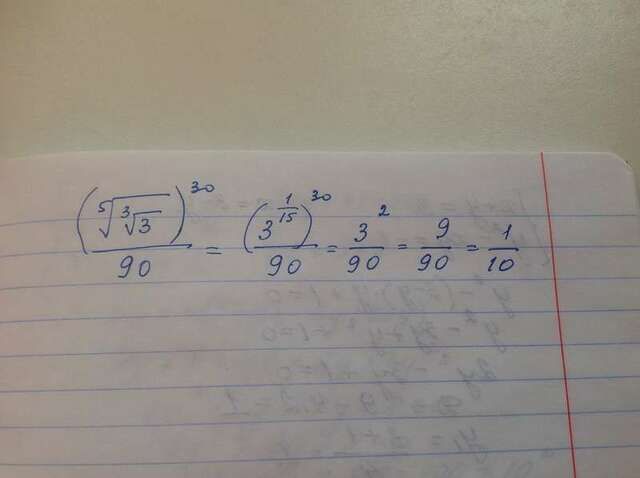 (⁵√(³√3))³⁰ / 90 = (3^(1/15))³⁰ / 90 = 3² / 90 = 9 / 90 = 1 / 10